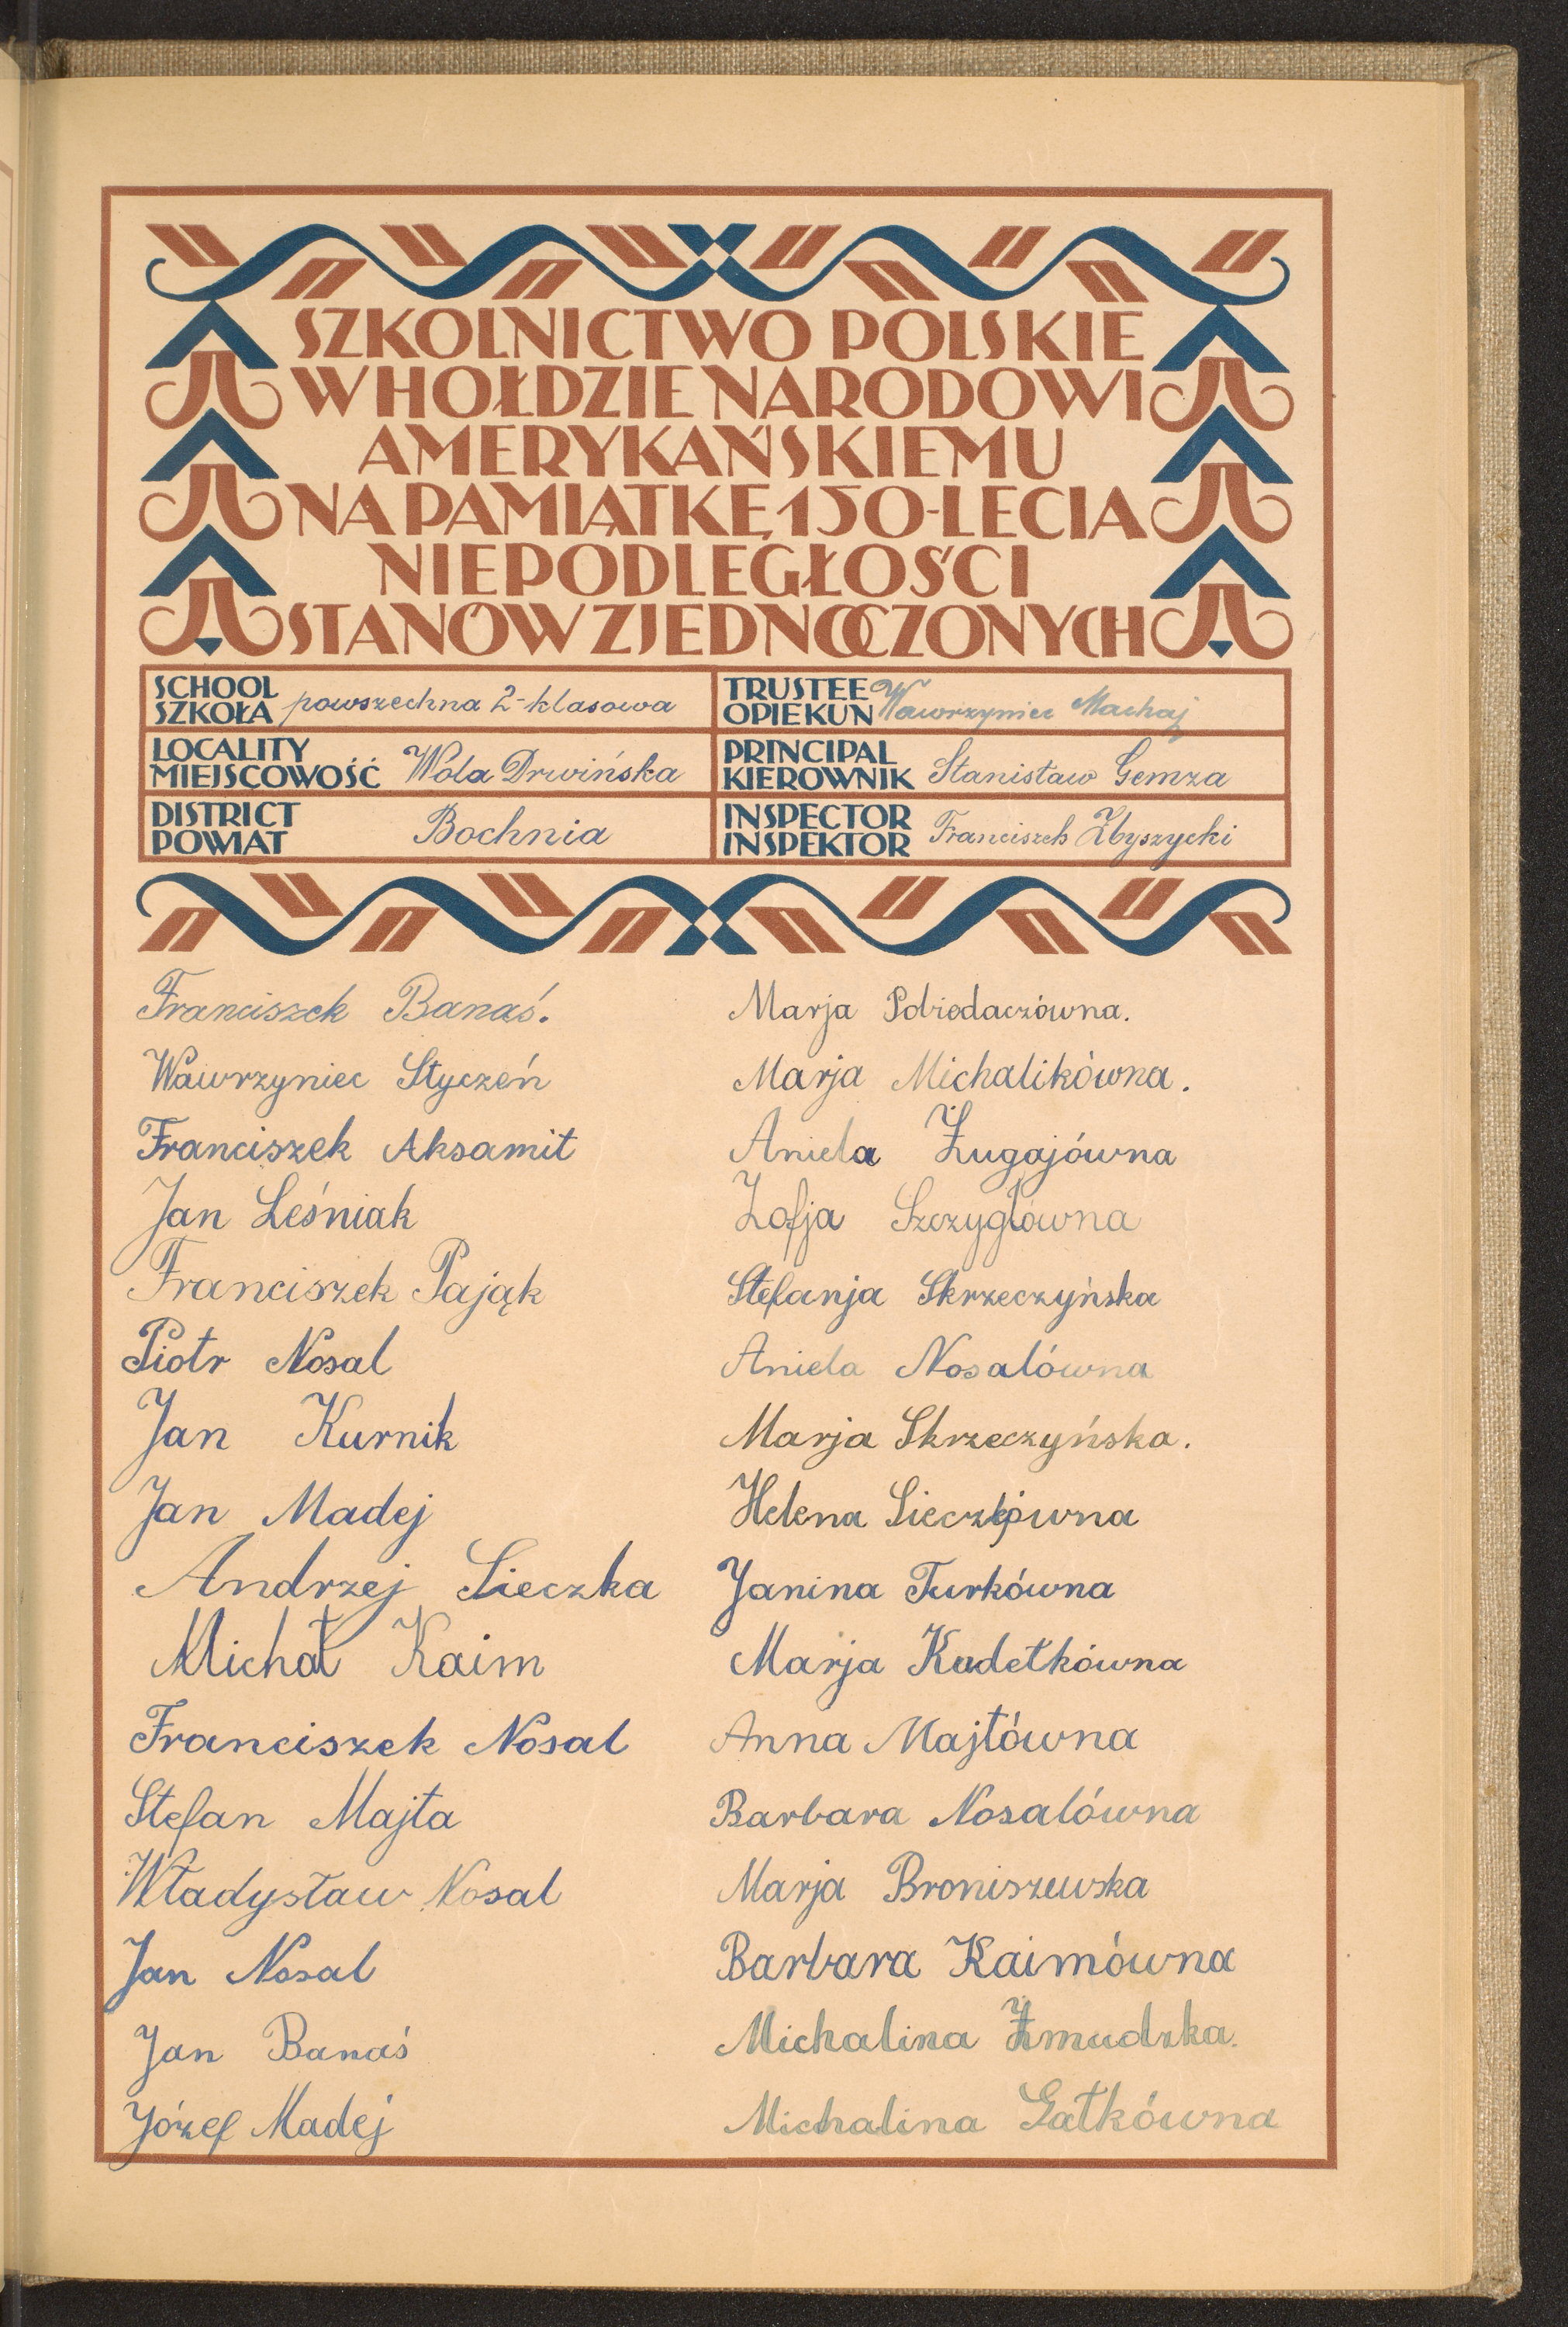 SZKOLNICTWO POLSKIE
W HOŁDZIE NARODOWI
AMERYKAŃSKIEMU
NA PAMIĄTKĘ 150-LECIA
NIEPODLEGŁOŚCI
STANÓW ZJEDNOCZONYCH
SCHOOL
SZKOŁA powszechna 2-klasowa
LOCALITY
MIEJSCOWOŚĆ Wola Drwińska
DISTRICT
POWIAT Bochnia
TRUSTEE
OPIEKUN Wawrzyniec Machaj
PRINCIPAL
KIEROWNIK Stanisław Gemza
INSPECTOR
INSPEKTOR Franciszek Zbyszycki
Franciszek Banaś.
Wawrzyniec Styczeń
Franciszek Aksamit
Jan Leśniak
Franciszek Pająk
Piotr Nosal
Jan Kurnik
Jan Madej
Andrzej Sieczka
Michał Kaim
Franciszek Nosal
Stefan Majta
Władysław Nosal
Jan Nosal
Jan Banaś
Józef Madej
Marja Pobiedaczówna.
Marja Michalikówna.
Aniela Żugajówna
Zofja Szczygłówna
Stefanja Skrzeczyńska
Aniela Nosalówna
Marja Skrzeczyńska.
Helena Sieczkówna
Janina Turkówna
Marja Kudełkówna
Anna Majtówna
Barbara Nosalówna
Marja Broniszewska
Barbara Kaimówna
Michalina Żmudzka.
Michalina Gałkówna